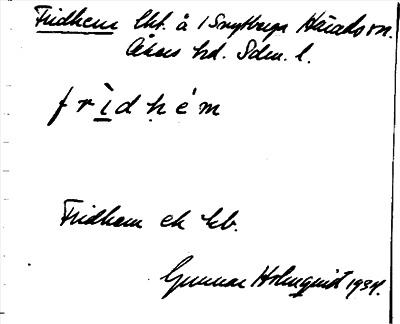 Fridhem lht. å 1 Snytberga Härads sn.
Åkers hd. Sdm. l.
frìdhém
Fridhem ek kb.
Gunnar Holmquist 1934.